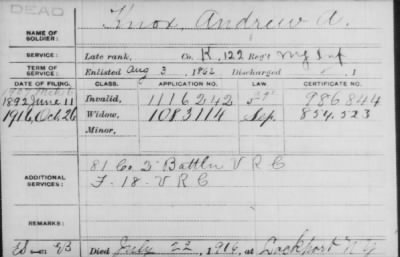 DEAD
NAME OF SOLDIER: Knox, Andrew A.
SERVICE: Late rank, Co. K, 122 Reg't N.Y. Inf
TERM OF SERVICE: Enlisted Aug 3, 1862 Discharged , 1
DATE OF FILING. CLASS. APPLICATION NO. LAW. CERTIFICATE NO.
1892 June 11 Invalid, 1116242 986844
1916, Oct. 26 Widow, 1083114 Sep. 854.523
Minor,
ADDITIONAL SERVICES: 81 Co. 2" Battln V R C
F - 18 - V R C
REMARKS:
Died July 22, 1916, at Lockport N.Y.